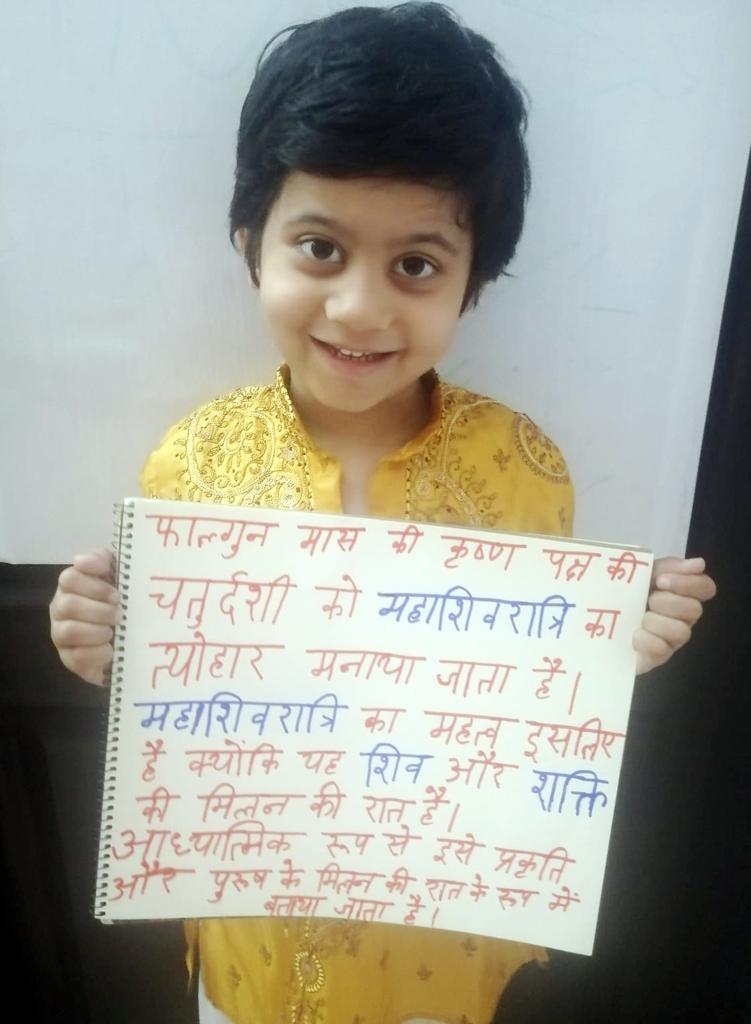 फाल्गुन मास की कृष्ण पक्ष की
चतुर्दशी को महाशिवरात्रि का
त्योहार मनाया जाता है।
महाशिवरात्रि का महत्व इसलिए
है क्योंकि यह शिव और शक्ति
की मिलन की रात है।
आध्यात्मिक रूप से इसे प्रकृति
और पुरुष के मिलन की रात के रूप में
बताया जाता है।